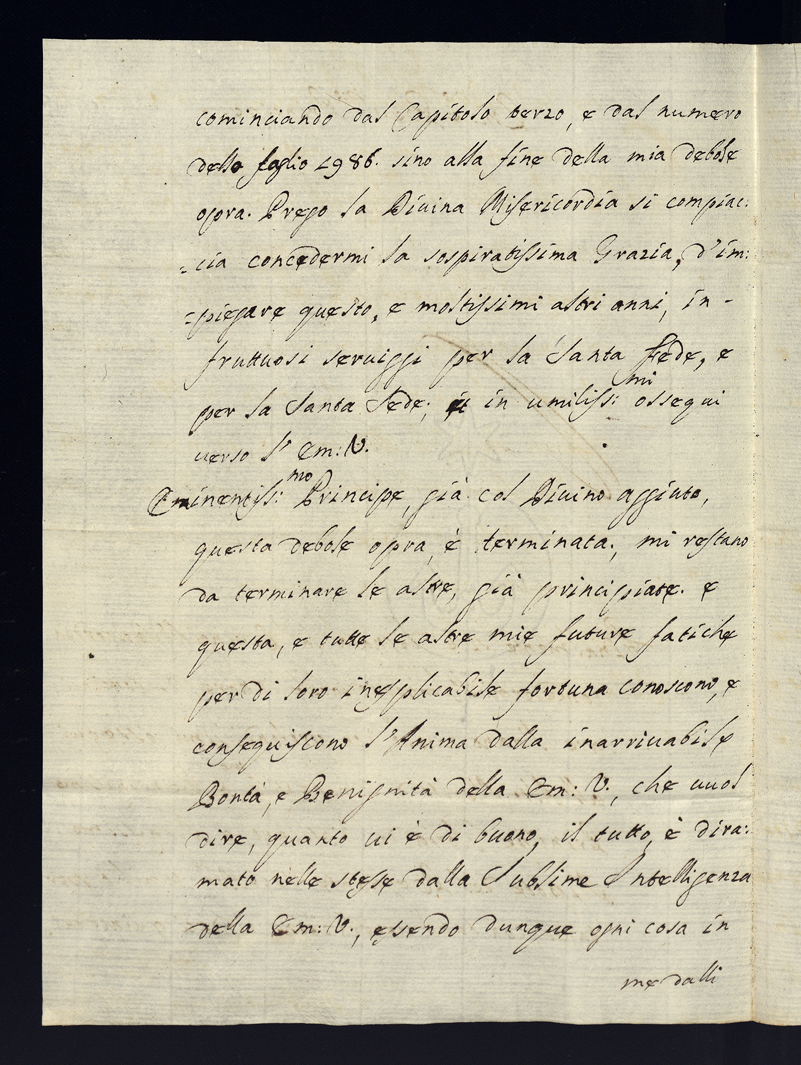 cominciando dal Capitolo terzo, e dal numero
dello foglio 1986. sino alla fine della mia debole
opra. Prego la Divina Misericordia si compiac:
=cia concedermi la sospiratissima Grazia, d'im:
=piegare questo, e moltissimi altri anni, in-
fruttuosi serviggi per la Santa Fede, e
per la Santa Sede; in umiliss:mi ossequi
verso l' Em: V.
Eminentiss:mo Principe, già col Divino aggiuto,
questa debole opra, è terminata., mi restano
da terminare le altre, già principiate. e
questa, e tutte le altre mie future fatiche
per di loro inesplicabile fortuna conoscono, e
conseguiscono l'Anima dalla inarrivabile
Bontà, e Benignità della Em: V., che vuol
dire, quanto vi è di buono, il tutto, è dira:
mato nelle stesse dalla Sublime Intelligenza
della Em: V., essendo dunque ogni cosa in
me dalli